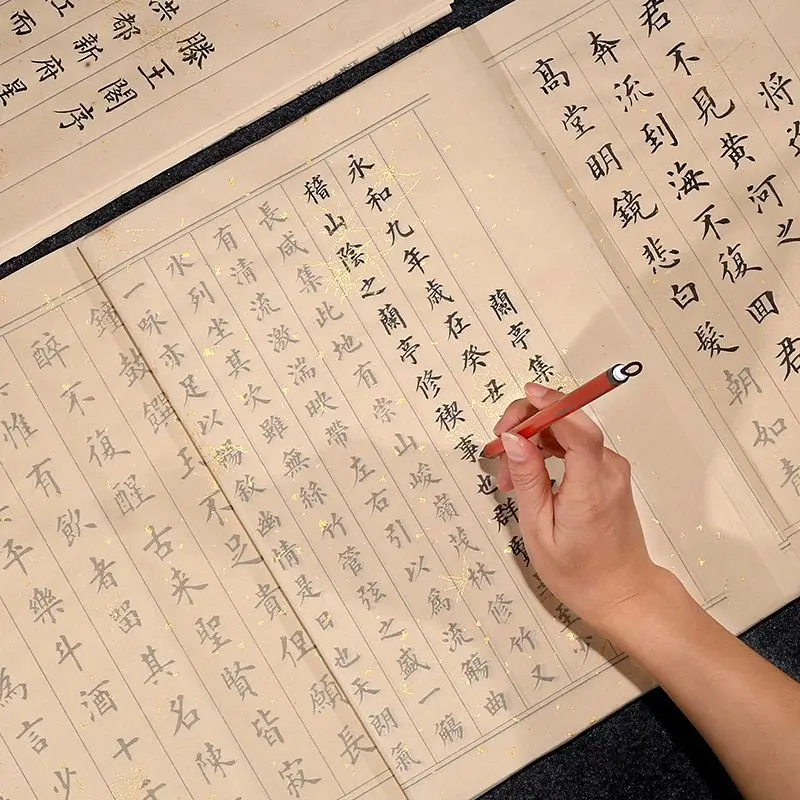 將進
君不見黃河之
奔流到海不復回君
高堂明鏡悲白髮朝如青
蘭亭集
永和九年歲在癸丑
稽山陰之蘭亭修禊事也群賢至少
長咸集此地有崇山峻嶺茂林修竹又
有清流激湍映帶左右引以爲流觴曲
水列坐其次雖無絲竹管弦之盛一觴
一詠亦足以暢敘幽情是日也天朗氣
鐘鼓饌玉不足貴但願長
醉不復醒古來聖賢皆寂
惟有飲者留其名陳
平樂斗酒十
為言少
滕王閣序
洪都新府星
江而